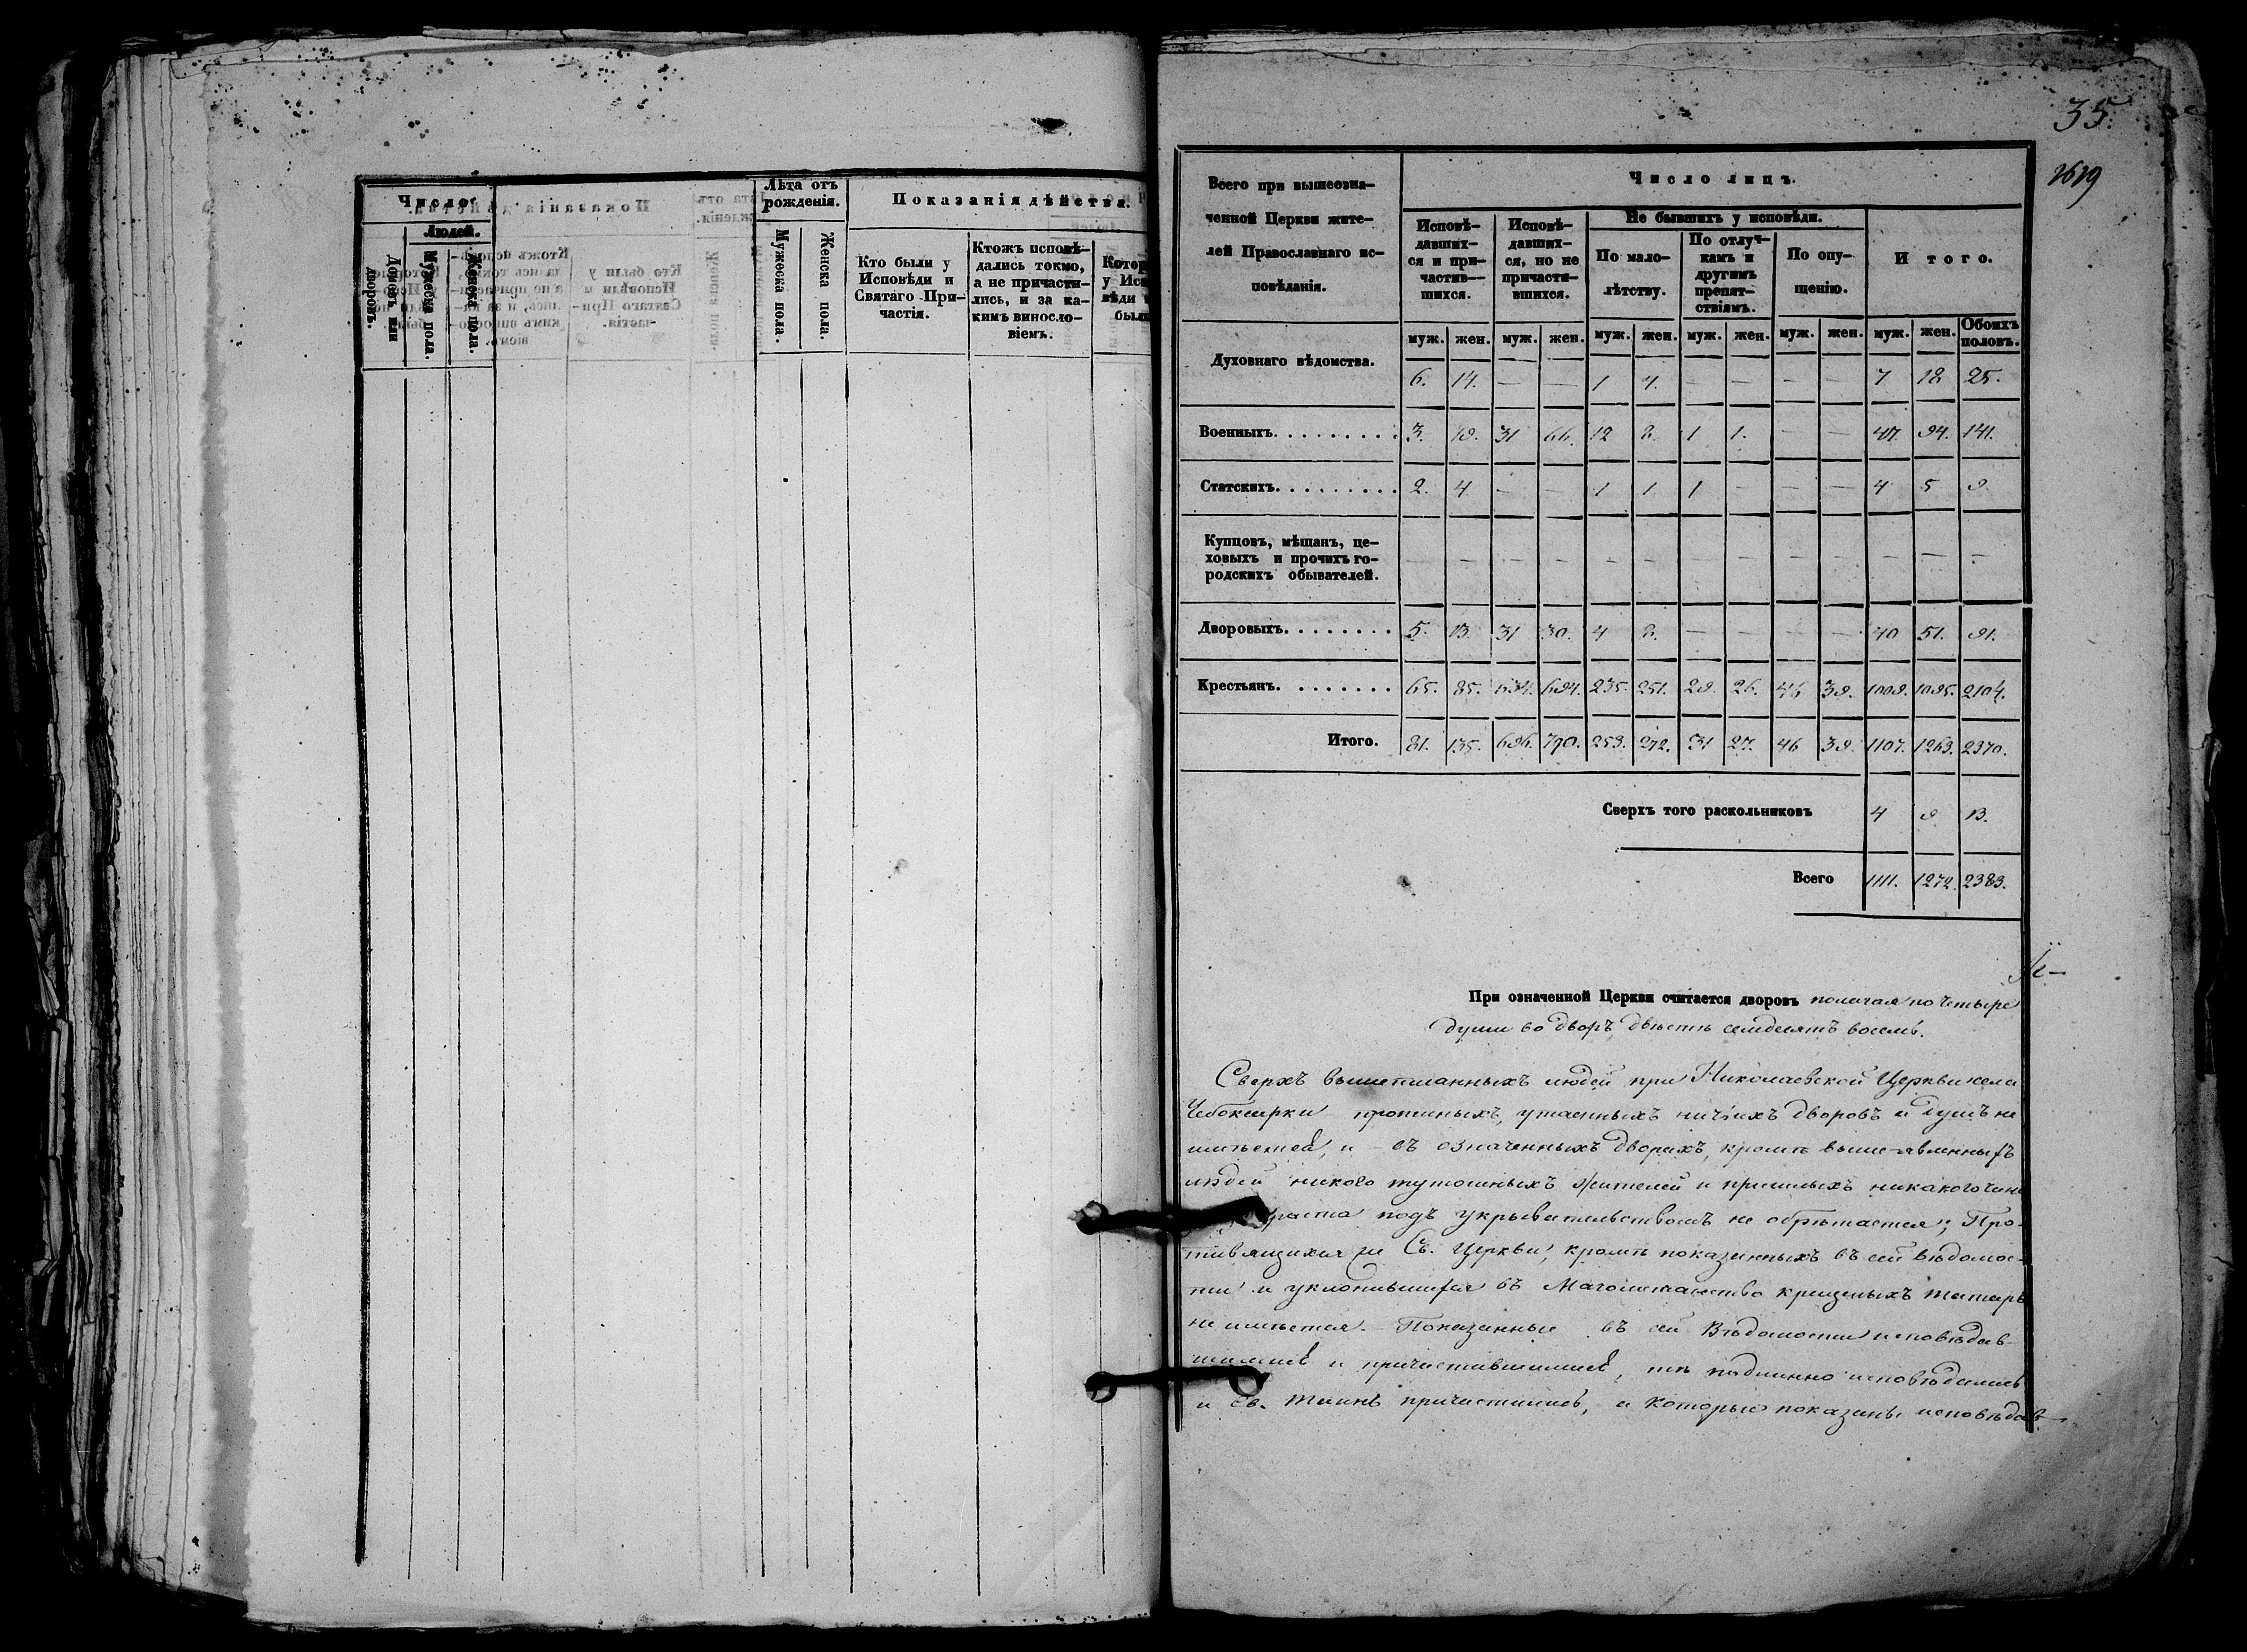 Число
Людей.
Домовъ или дворовъ.
Мужеска пола.
Женска пола.
Лѣта отъ рожденія.
Мужеска пола.
Женска пола.
Показанія дѣйства.
Кто были у
Исповѣди и
Святаго При-
частія.
Ктожъ исповѣ-
дались токмо,
а не причасти-
лись, и за ка-
кимъ виносло-
віемъ.
35.
1619
Всего при вышеозна-
ченной Церкви жите-
лей Православнаго ис-
повѣданія.
Число лицъ.
Исповѣ-
давших-
ся и при-
частив-
шихся.
Исповѣ-
давших-
ся, но не
причасти-
вшихся.
Не бывшихъ у исповѣди.
По мало-
лѣтству.
По отлуч-
камъ и
другимъ
препят-
ствіямъ.
По опу-
щенію.
Итого.
муж. жен. муж. жен. муж. жен. муж. жен. муж. жен. муж. жен. Обоихъ половъ.
Духовнаго вѣдомства. 6. 14. — — 1 4. — — — — 7 18 25.
Военныхъ. 3. 19. 31 66. 12 8. 1 1. — — 47. 94. 141.
Статскихъ. 2. 4 — — 1 1 1 — — — 4 5 9.
Купцовъ, мѣщанъ, це-
ховыхъ и прочихъ го-
родскихъ обывателей. — — — — — — — — — — — — —
Дворовыхъ. 5. 13. 31 30. 4 8. — — — — 40 51. 91.
Крестьянъ. 65. 85. 634. 694. 235. 251. 29. 26. 46 39. 1009. 1095. 2104.
Итого. 81. 135. 696. 790. 253. 272. 31 27. 46 39. 1107. 1263. 2370.
Сверхъ того раскольниковъ 4 9 13.
Всего 1111. 1272. 2383.
При означенной Церкви считается дворовъ полагая по четыре
души во дворъ, двѣсти семдесятъ восемь.
Сверхъ вышеписанныхъ людей при Николаевской Церкви села
Чебоксарки прописныхъ, утаенныхъ ничіихъ дворовъ и душъ не
имѣется, и въ означенныхъ дворахъ, кромѣ выше-явленныхъ
людей никого тутошныхъ жителей и пришлыхъ никакого чина
подъ укрывательствомъ не обрѣтается; Про-
тивящихся же Св. Церкви, кромѣ показанныхъ въ сей вѣдомос-
ти и уклонившихся въ Магометанство крещеныхъ татаръ
не имѣется. Показанные въ сей Вѣдомости исповѣдав-
шимися и причастившимися, тѣ подлинно исповѣдались
и Св. Таинъ причастились, а которые показаны исповѣдав-